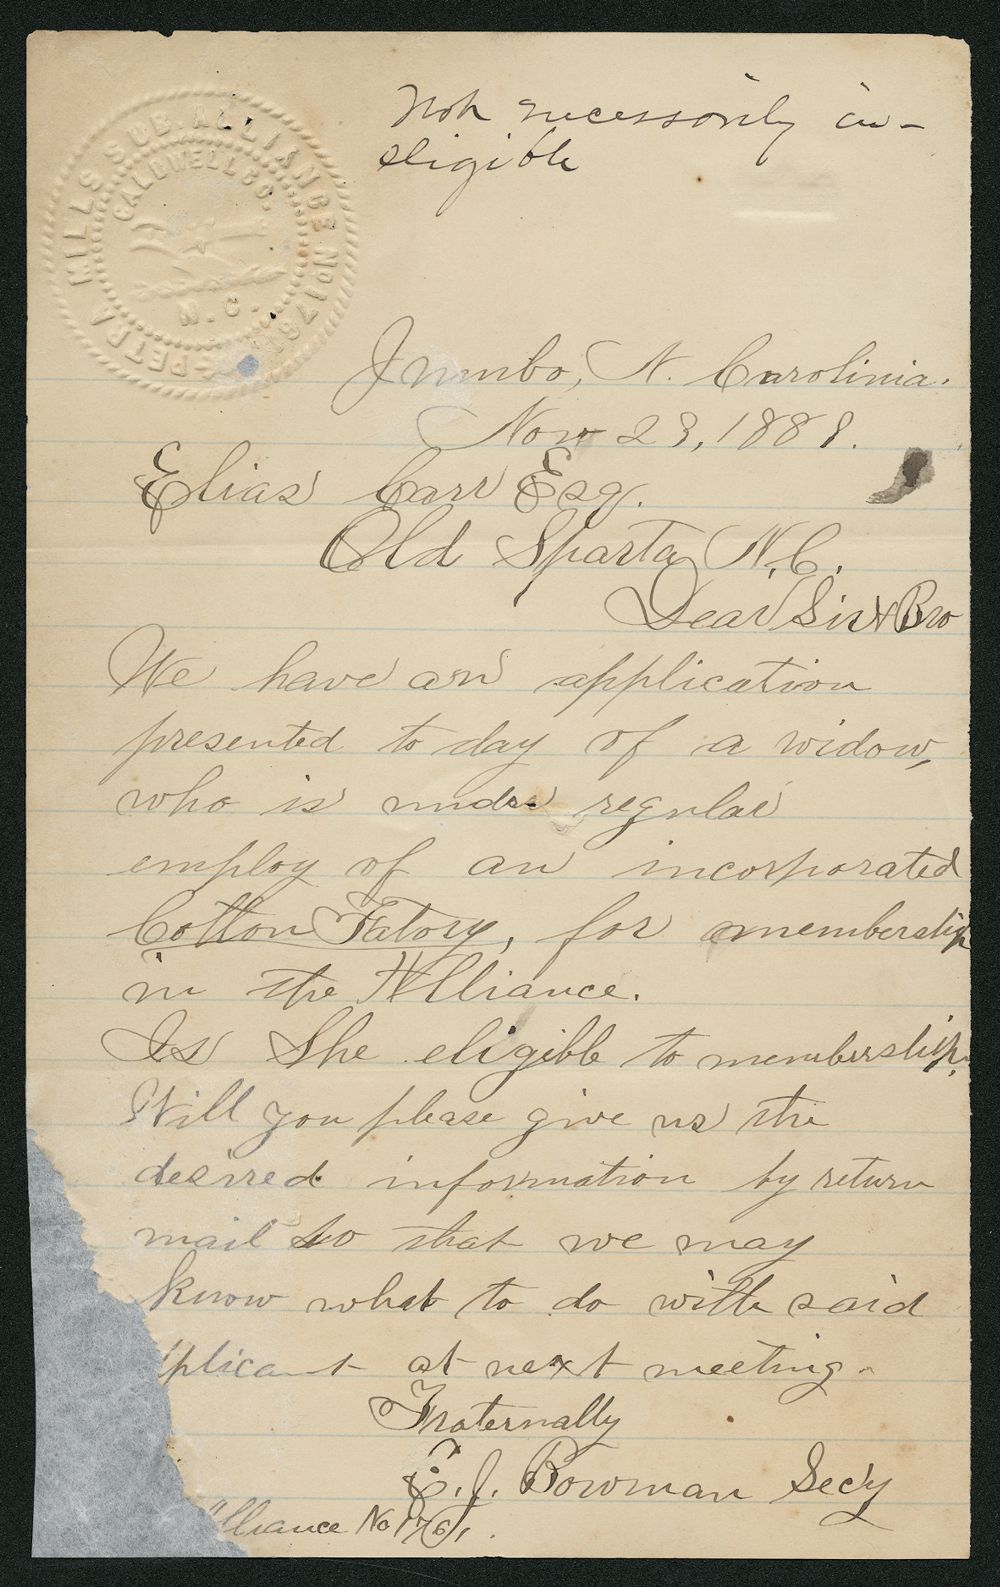 Not necessarily in-
eligible
PETRA MILLS SUB. ALLIANCE No 1761
CALDWELL CO.
N.C.
Jumbo, N. Carolina.
Nov 23, 1888.
Elias Carr Esq.
Old Sparta, N.C.
Dear Sir & Bro
We have an application
presented to day of a widow,
who is under regular
employ of an incorporated
Cotton Fatory, for membership
in the Alliance.
Is She eligible to membership.
Will you please give us the
desired information by return
mail so that we may
know what to do with said
pplicant at next meeting.
Fraternally
E. J. Bowman Secy
Alliance No 1761.